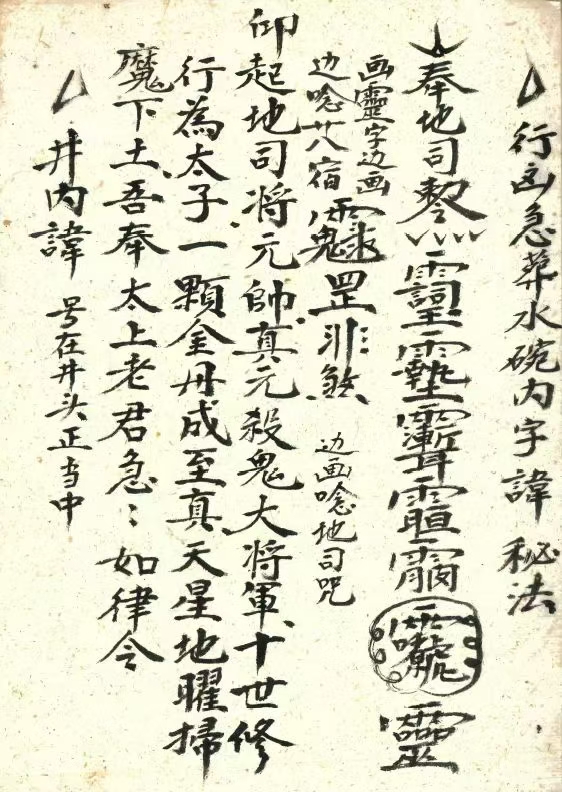 行凶急葬水碗内字諱秘法
奉地司
靈
画靈字边画
边唸廿八宿
罡
边画唸地司咒
仰起地司将元帥真元殺鬼大将軍十世修
行為太子一顆金丹成至真天星地曜掃
魔下土吾奉太上老君急〻如律令
井内諱 号在井头正当中